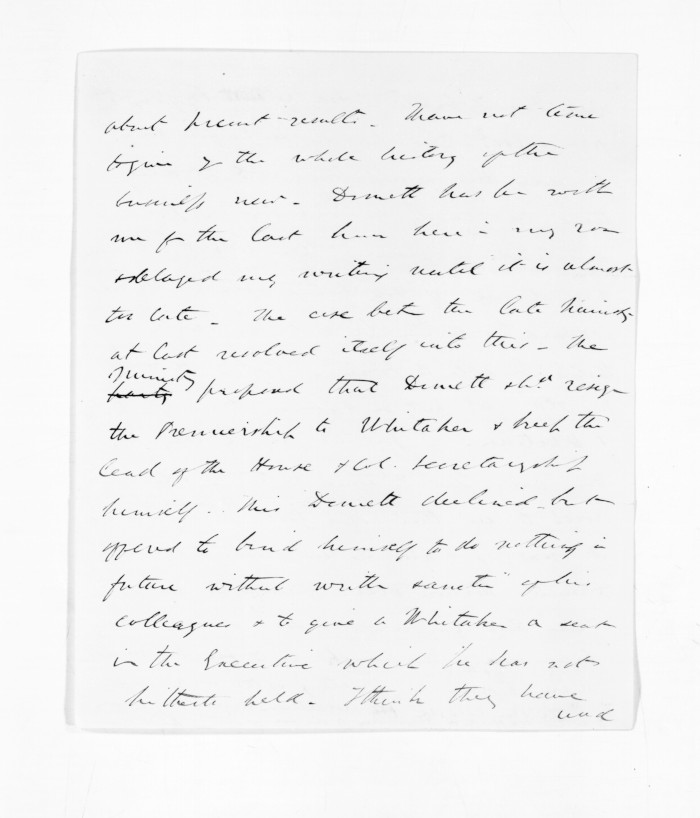 about present results. I have not time
to give you the whole history of the
business now. Domett has been with
me for the last hour here in my room
& delayed my writing until it is almost
too late. The case betn the late Ministry
at last resolved itself into this. The
Ministry
party proposed that Domett shd. resign
the Premiership to Whitaker & keep the
lead of the House & Col. Secretaryship
himself. This Domett declined but
offered to bind himself to do nothing in
future without writtn sanctn of his
colleagues & to give a Whitaker a seat
in the Executive which he has not
hitherto held. I think they have